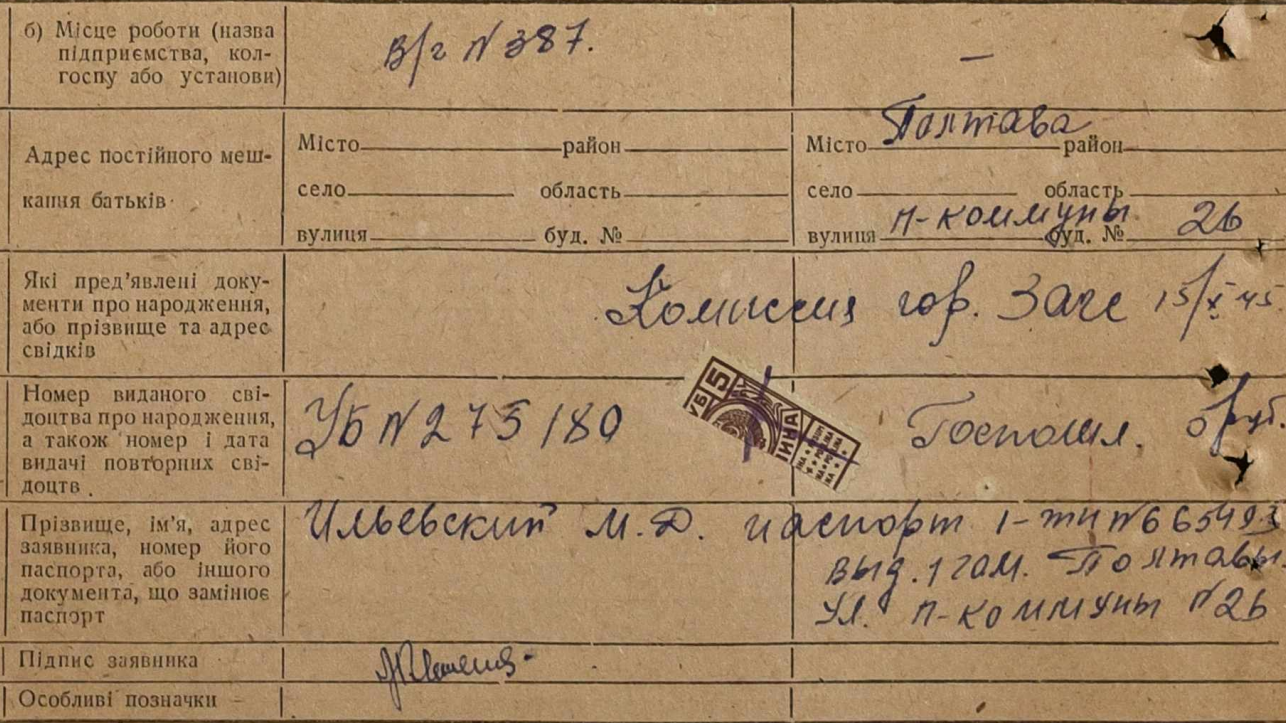 б) Місце роботи (назва
підприємства, кол-
госпу або установи)
В/г N 387.
—
Адрес постійного меш-
кання батьків
Місто район
село область
вулиця буд. №
Місто Полтава район
село область
вулиця П-коммуны буд. № 26
Які пред'явлені доку-
менти про народження,
або прізвище та адрес
свідків
Комиссия гор. Загс 15/X 45
Номер виданого сві-
доцтва про народження,
а також номер і дата
видачі повторних сві-
доцтв
УБ N 275180
5
Госпошл. руб.
Прізвище, ім'я, адрес
заявника, номер його
паспорта, або іншого
документа, що замінює
паспорт
Ильевский М.Д. паспорт 1-ТИ N 665493
выд. 1 гом. Полтавы.
Ул. П-коммуны N 26
Підпис заявника
Особливі позначки